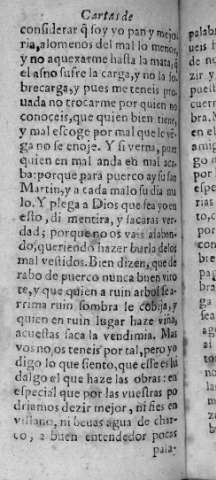 Cartas de
considerar q̃ soy yo pan y mejo
ria, alomenos del mal lo menos,
y no aquexarme hasta la mata, q̃
el asno sufre la carga, y no la so
brecarga, y pues me teneis pro
uada no trocarme por quien no
conoceis, que quien bien tiene,
y mal escoge por mal que le vē
ga no se enoje. Y si vernu, pues
quien en mal anda en mal aca
ba: porque para puerco ay su san
Martin, y a cada malo su dia ma
lo. Y plega a Dios que sea yo en
esto, di mentira, y sacaras ver-
dad; porque no os vais alaban-
do, queriendo hazer burla de los
mal vestidos. Bien dizen, que de
rabo de puerco nunca buen viro
te, y que quien a ruin arbol se a-
rrima ruin sombra le cobija, y
quien en ruin lugar haze viña,
acuestas saca la vendimia. Mas
vos no os teneis por tal, pero yo
digo lo que siento, que esse es hi
dalgo el que haze las obras: en
especial que por las vuestras po
driamos dezir mejor, ni fies en
villano, ni beuas agua de char-
co, a buen entendedor pocas
pala-